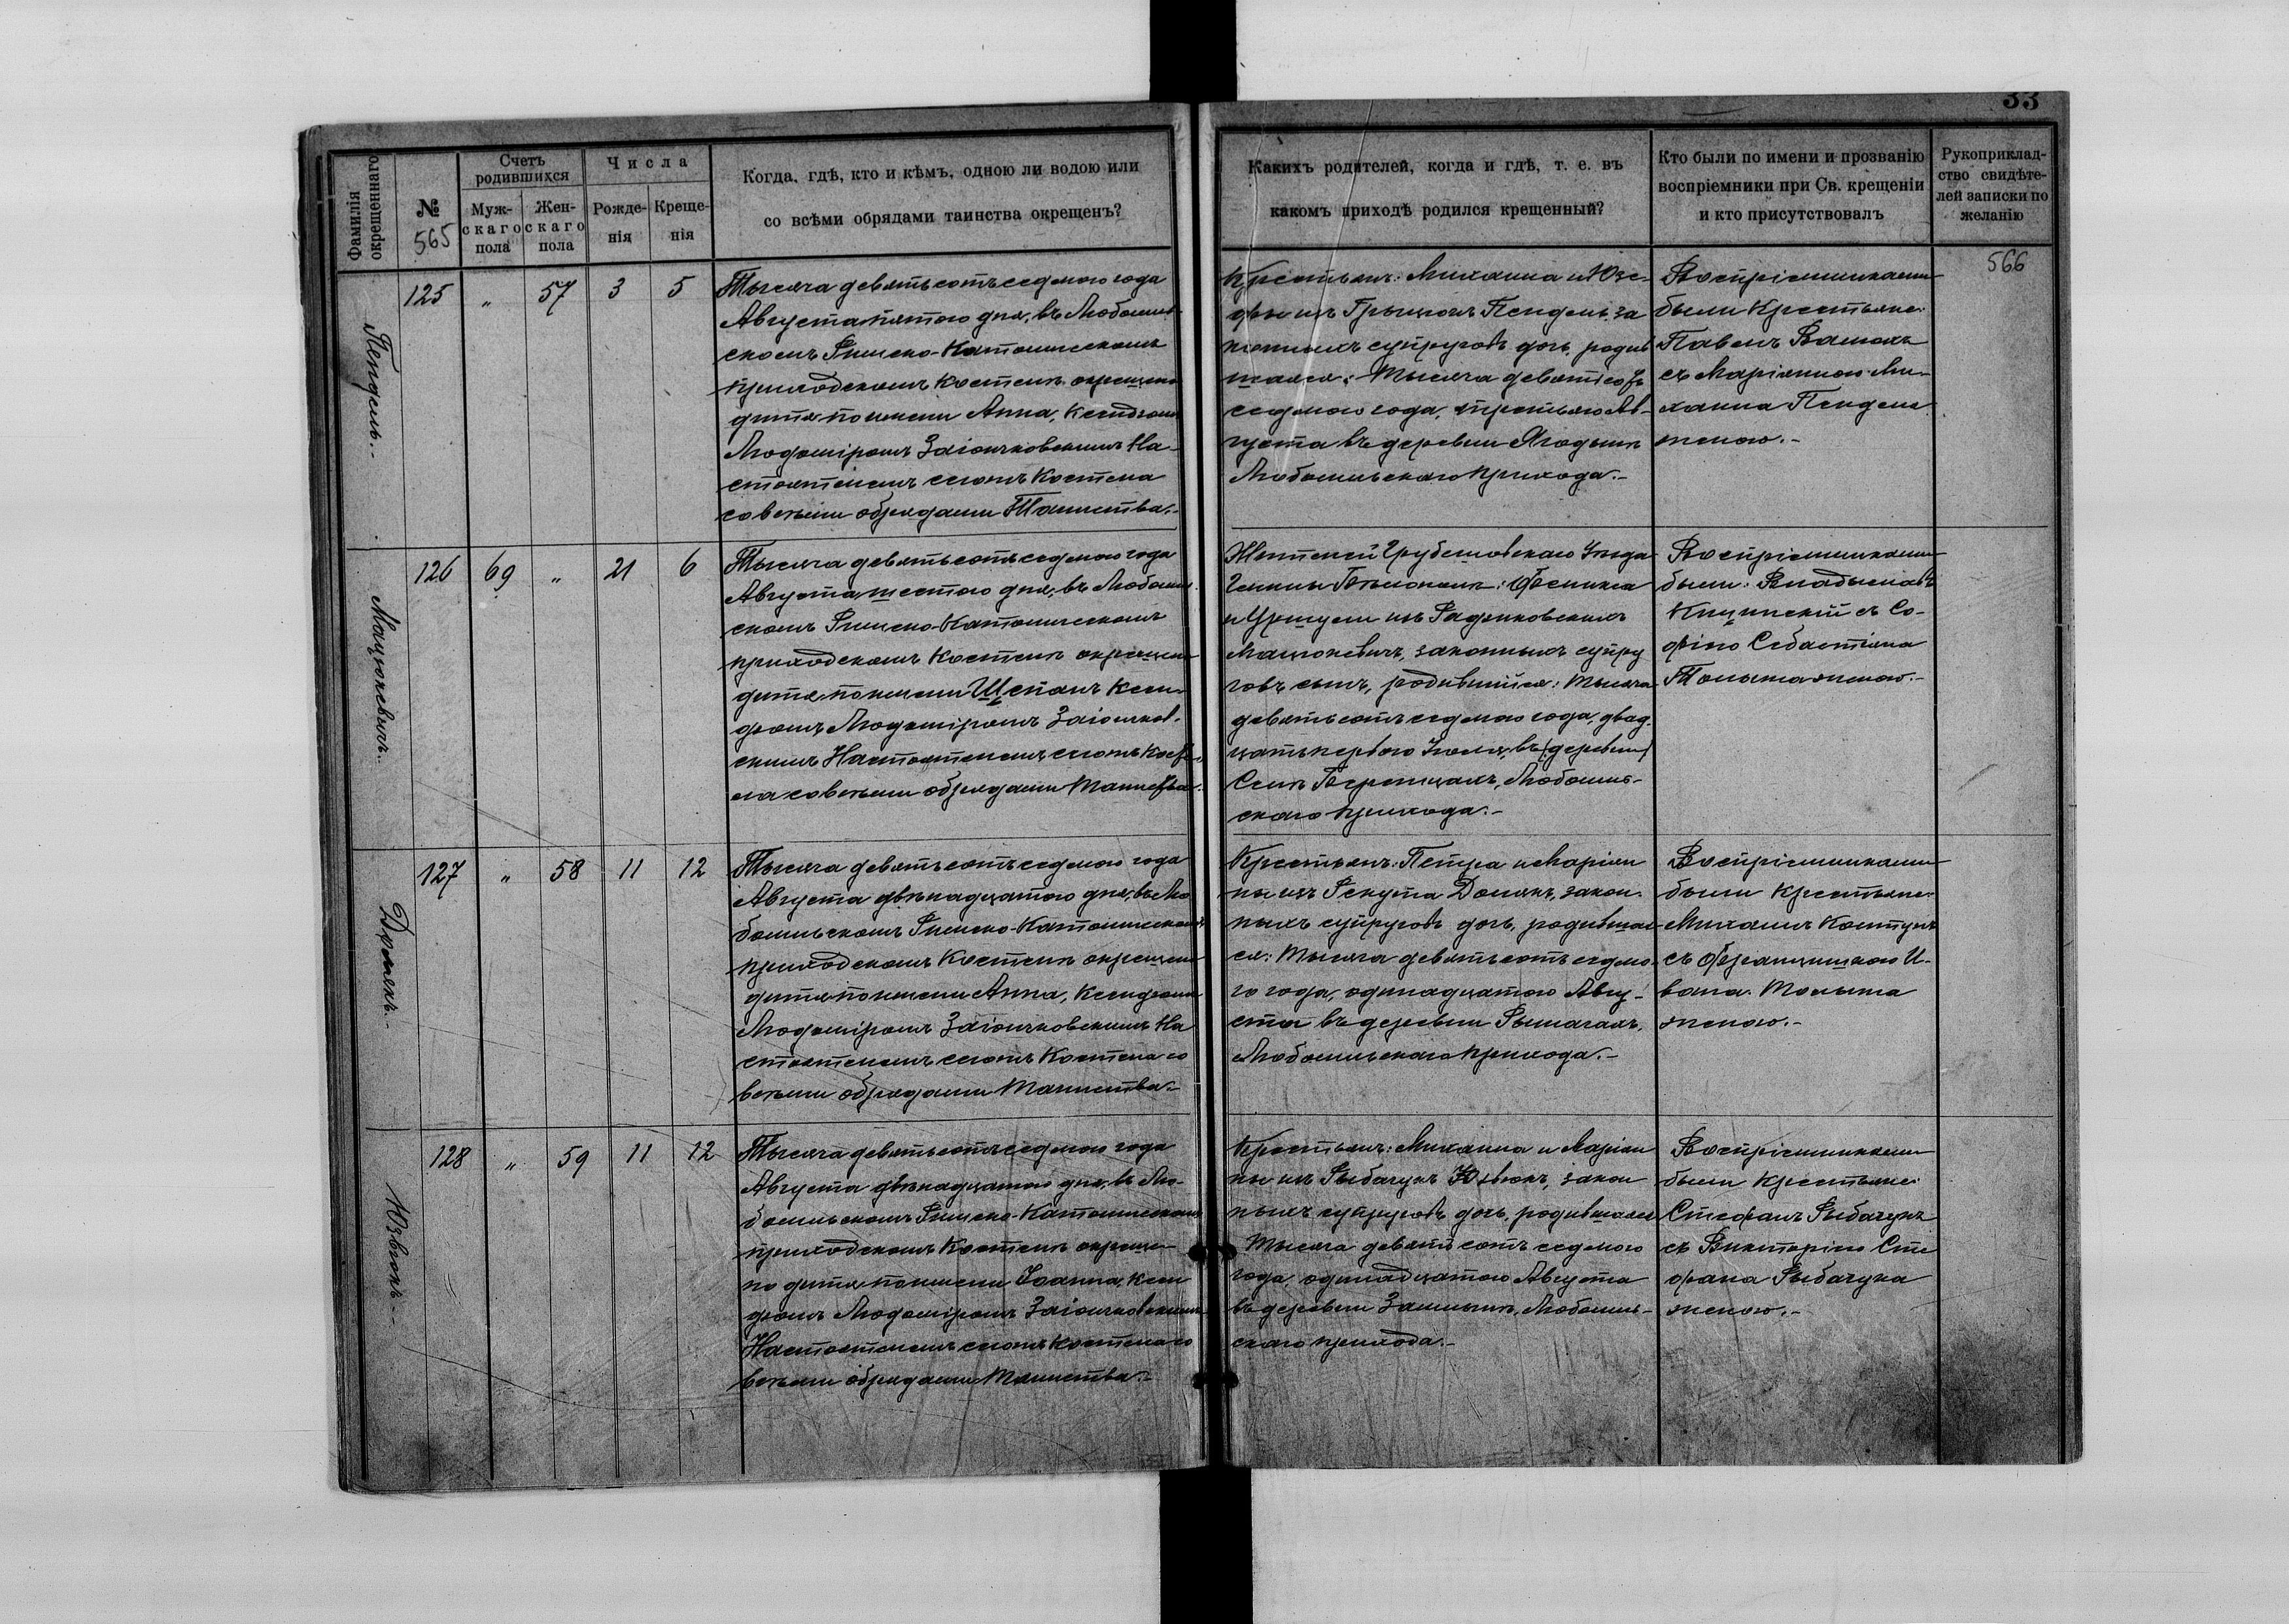 33
Фамилія окрещеннаго
№
565
Счетъ родившихся
Муж-скаго пола
Жен-скаго пола
Числа
Рожде-нія
Креще-нія
Когда, гдѣ, кто и кѣмъ, одною ли водою или
со всѣми обрядами таинства окрещенъ?
Какихъ родителей, когда и гдѣ, т. е. въ
какомъ приходѣ родился крещенный?
Кто были по имени и прозванію
воспріемники при Св. крещеніи
и кто присутствовалъ
Рукоприклад-
ство свидѣте-
лей записки по
желанію
566
Пендель.-
125 " 57 3 5
Тысяча девятьсотъ седмого года
Августа пятого дня, въ Любомль-
скомъ Римско-Католическомъ
приходскомъ Костелѣ окрещено
дитя по имени Анна, Ксендзомъ
Людоміромъ Заіончковскимъ На-
стоятелемъ сего Костела
со всѣми обрядами Таинства.-
Крестьянъ: Михаила и Юзе-
фы изъ Пендель, за
конныхъ супруговъ дочь, родив
шаяся: Тысяча девятьсотъ
седмого года, третьяго Ав-
густа въ деревни Ягодынѣ
Любомльскаго прихода.-
Воспріемниками
были Крестьяне:
Павелъ
съ Маріянною Ми-
хаила Пенделя
женою.-
Мацюкевичъ.
126 69 " 21 6
Тысяча девятьсотъ седмого года
Августа шестого дня, въ Любомль-
скомъ Римско-Католическомъ
приходскомъ Костелѣ окрещено
дитя по имени Щепанъ Ксен-
дзомъ Людоміромъ Заіончков-
скимъ Настоятелемъ сего Косте-
ла со всѣми обрядами Таинства.
Жителей Грубешовскаго Уѣзда
Гмины Феликса
и Уршули изъ
Мацюкевичъ, законныхъ супру
говъ сынъ, родившійся: Тысяча
девятьсотъ седмого года, двад-
цать первого Іюля, въ (деревни)
Селѣ Любомль-
скаго прихода.-
Воспріемниками
были: Владыславъ
съ Со-
фіею Себастіяна
женою.-
Домякъ.-
127 " 58 11 12
Тысяча девятьсотъ седмого года
Августа двѣнадцатого дня, въ Лю
бомльскомъ Римско-Католическомъ
приходскомъ Костелѣ окрещено
дитя по имени Анна, Ксендзомъ
Людоміромъ Заіончковскимъ На
стоятелемъ сего Костела со
всѣми обрядами Таинства.-
Крестьянъ: Петра и Маріян
ны изъ Домякъ, закон-
ныхъ супруговъ дочь, родившая-
ся: Тысяча девятьсотъ седмо-
го года, одинадцатого Авгу-
ста въ деревни Рымачахъ,
Любомльскаго прихода.-
Воспріемниками
были Крестьяне:
Михаилъ
съ Францишкою И-
вана
женою.-
Юзвюкъ.-
128 " 59 11 12
Тысяча девятьсотъ седмого года
Августа двѣнадцатого дня, въ Лю-
бомльскомъ Римско-Католическомъ
приходскомъ Костелѣ окреще-
но дитя по имени Іоанна, Ксен
дзомъ Людоміромъ Заіончковскимъ
Настоятелемъ сего Костела со
всѣми обрядами Таинства.-
Крестьянъ: Михаила и Маріян
ны изъ Рыбачукъ Юзвюкъ, закон
ныхъ супруговъ дочь, родившаяся
Тысяча девятьсотъ седмого
года, одинадцатого Августа
въ деревни Любомль-
скаго прихода.-
Воспріемниками
были Крестьяне:
Стефанъ Рыбачукъ
съ Викторіею Сте
фана Рыбачука
женою.-